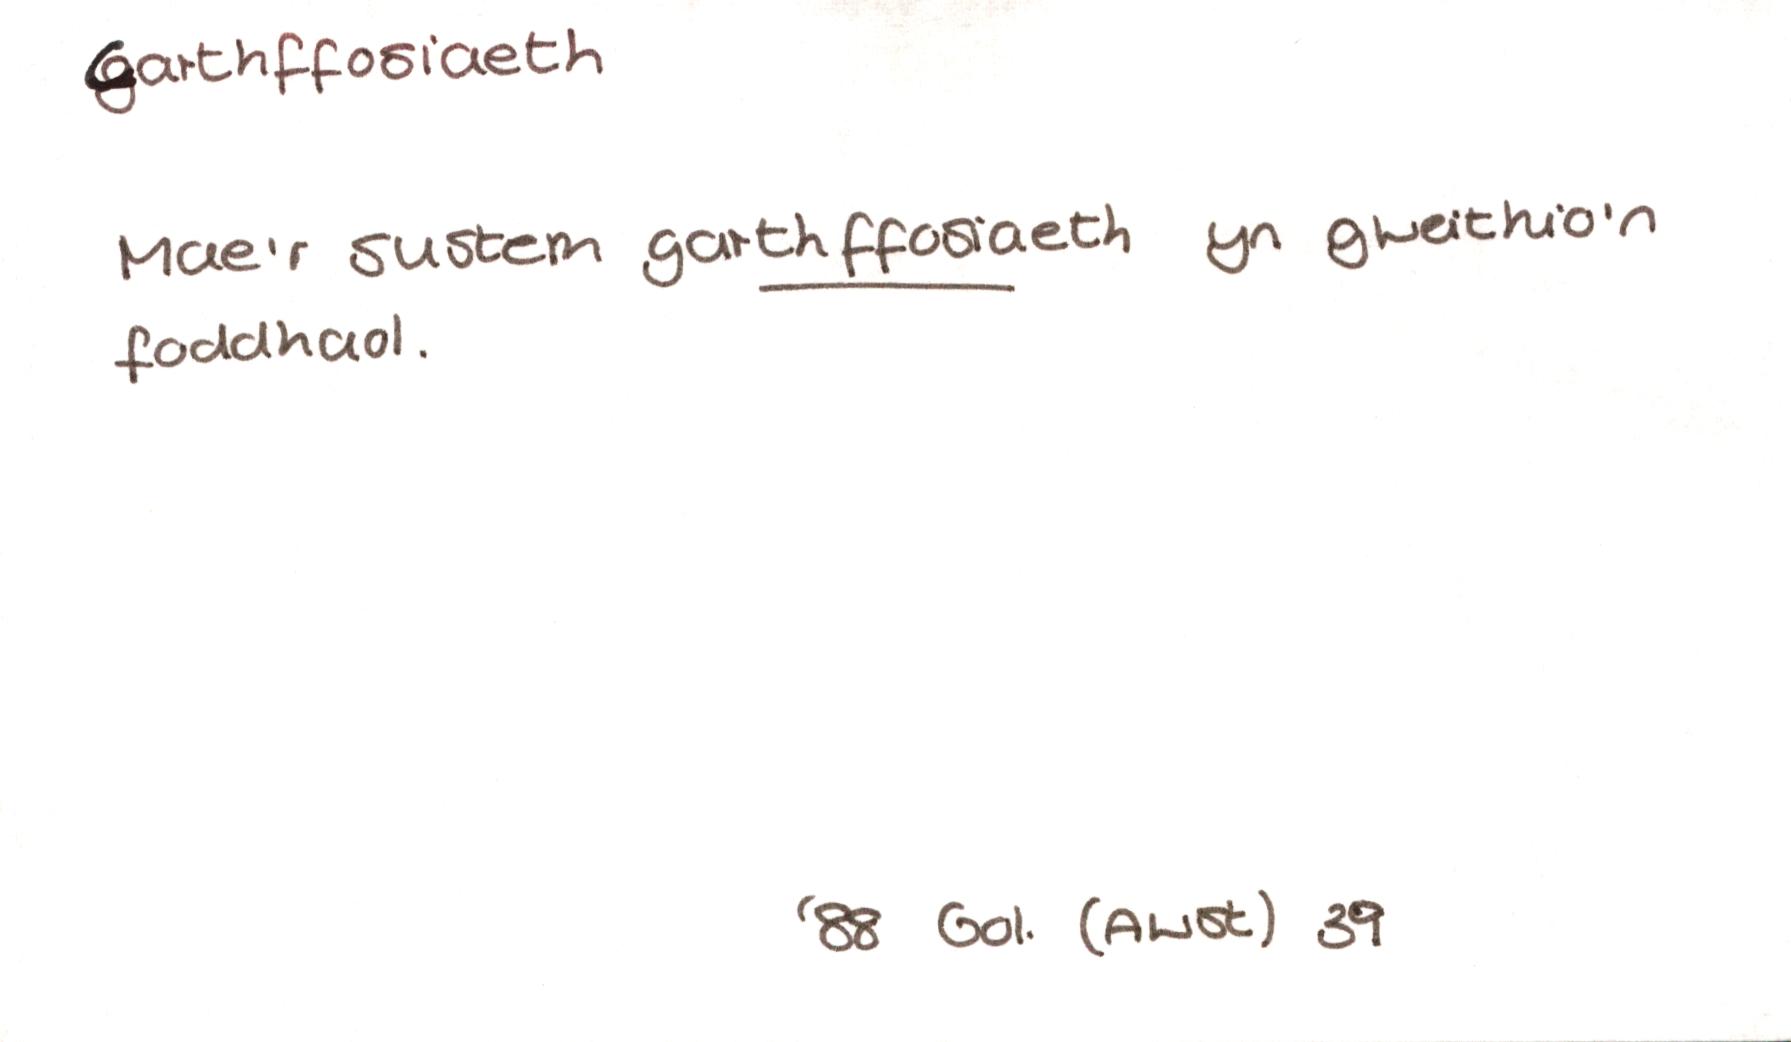 Garthffosiaeth
Mae'r sustem garthffosiaeth yn gweithio'n
foddhaol.
'88 Gol. (Awst) 39